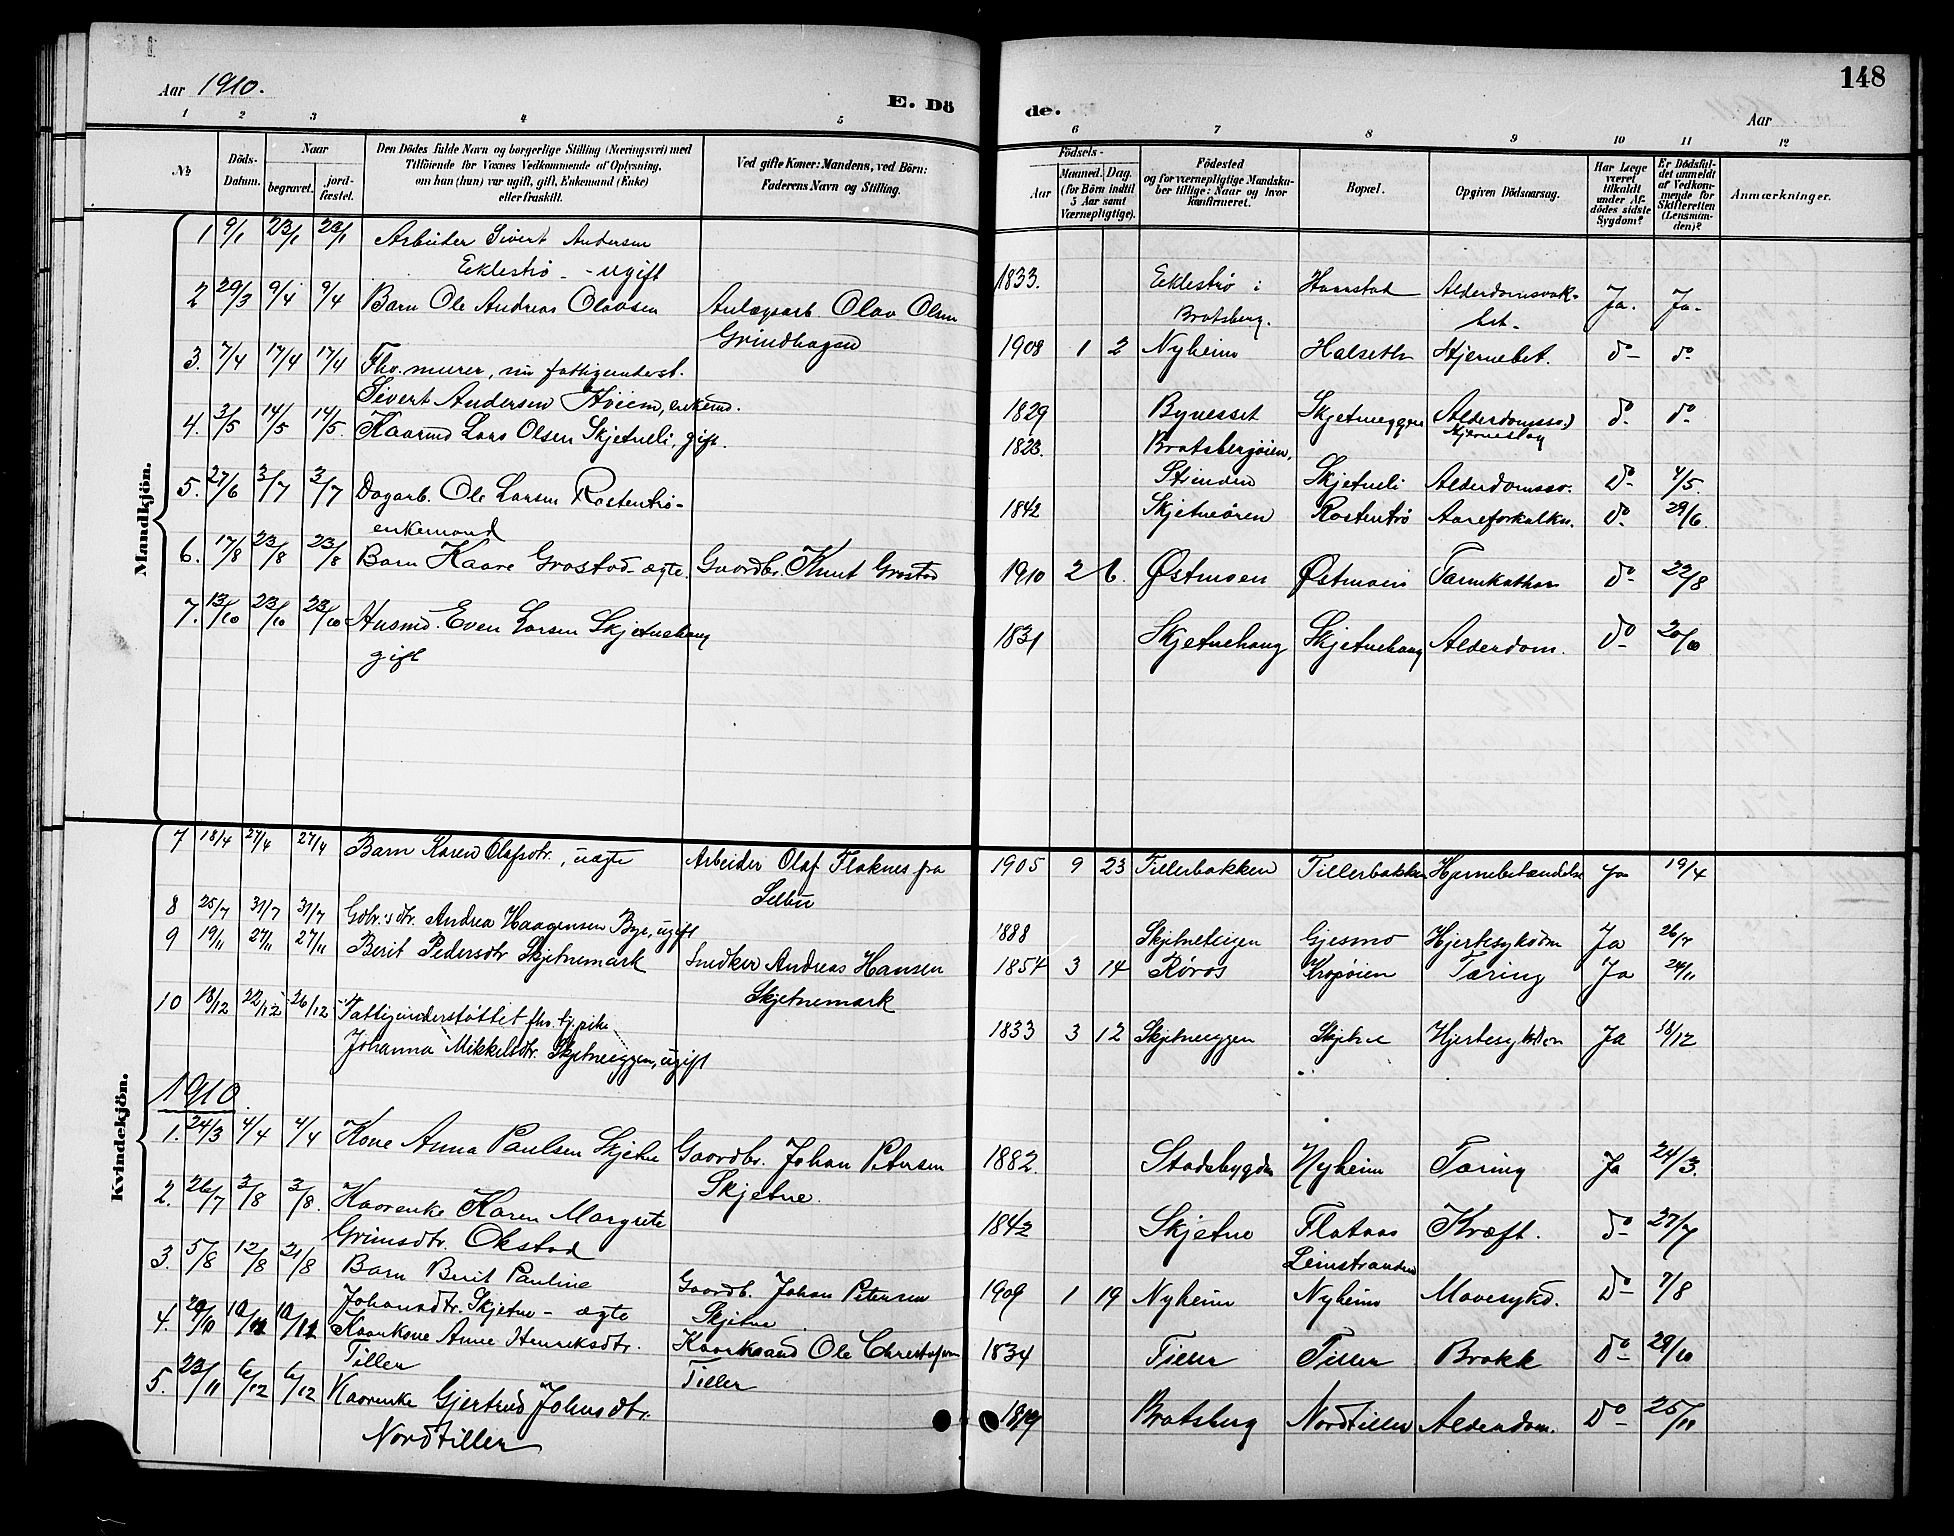 Aar 1910.
E. Dö
1 2 3 4 5
№
Döds-Datum.
Naar
begravet.
jord-fæstet.
Den Dödes fulde Navn og borgerlige Stilling (Næringsvei) med
Tilföiende for Voxnes Vedkommende af Oplysning,
om han (hun) var ugift, gift, Enkemand (Enke)
eller fraskilt.
Ved gifte Koner: Mandens, ved Börn:
Faderens Navn og Stilling.
Mandkjön.
1 9/1 23/1 23/1 Arbeider Sivert Andersen
Eklestrø - ugift
2 29/3 9/4 9/4 Barn Ole Andreas Olavsen Anlægsarb. Olav Olsen
Grindhagen
3. 7/4 17/4 17/4 Fhv. murer, nu fattigunderst.
Sivert Andersen Hviem, enkemd.
4. 3/5 14/5 14/5. Kaarmd Lars Olsen Skjetneli, gift.
5. 27/6 3/7 3/7 Dagarb. Ole Larsen Rostentrø-
enkemand
6. 17/8 23/8 23/8 Barn Kaare Grostad - ægte. Gaardbr. Knut Grostad
7. 13/10 23/10 23/10 Husmd. Even Larsen Skjetnehaug
gift
Kvindekjön.
7 18/4 27/4 27/4 Barn Karen Olafsdtr., uægte Arbeider Olaf Flaknes fra
Selbu
8 25/7 31/7 31/7 Gdbr.s dtr. Andrea Haagensen Bye, ugift
9 19/11 27/11 27/11 Berit Pedersdtr Skjetnemark Snedker Andreas Hansen
Skjetnemark
10 18/12 22/12 26/12 Fattigunderstøttet fhv. tj.pike
Johanna Mikkelsdtr. Skjetneeggen, ugift
1910.
1. 24/3 4/4 4/4 Kone Anna Paulsen Skjetne Gaardbr. Johan Petersen
Skjetne.
2. 26/7 3/8 3/8. Kaarenke Karen Margrete
Grimsdtr. Okstad
3. 5/8 12/8 21/8 Barn Berit Pauline
Johansdtr. Skjetne - ægte Gaardb. Johan Petersen
Skjetne
4. 29/10 10/11 10/11 Kaarkone Anne Henriksdtr.
Tiller Kaarmand Ole Christofersen
Tiller
5. 23/11 6/12 6/12 Kaarenke Gjertrud Johnsdtr.
Nordtiller
148
de.
Aar
6 7 8 9 10 11 12
Födsels-
Aar
Maaned. Dag.
(for Börn indtil
5 Aar samt
Værnepligtige).
Födested
og for værnepligtige Mandska-
ber tillige: Naar og hvor
konfirmeret.
Bopæl.
Opgiven Dödsaarsag.
Har Læge
været
tilkaldt
under Af-
dödes sidste
Sygdom?
Er Dödsfal-
det anmeldt
af Vedkom-
mende for
Skifteretten
(Lensman-
den)?
Anmærkninger.
1833. Eklestrø i Hannstad Alderdomssvak-
Bratsberg. het. Ja. Ja.
1908 1 2 Nyheim Halseth Hjernebet. do do
1829 Bynesset Skjetneeggen Alderdomssv.
Hjerneslag do do
1823. Bratsbergøien,
Strinden Skjetneli Alderdomssv. Do 4/5.
1842 Skjetneøren Rostentrø Aareforkalkn. do 29/6.
1910 2 6. Østmoen Østmoen Tarmkathar Do 22/8
1831 Skjetnehaug Skjetnehaug Alderdom. Do 20/10
1905 9 23 Tillerbakken Tillerbakken Hjernebetændelse Ja 19/4
1888 Skjetneteigen Gjesmo Hjertesykdom Ja 26/7
1854 3 14 Røros Kropøien Tæring Ja 24/11
1833 3 12 Skjetneeggen Skjetne Hjertesykdom Ja 18/12
1882. Stadsbygden Nyheim Tæring Ja 24/3.
1842 Skjetne Flataas
Leinstranden Kræft. Do 27/7
1909 1 19 Nyheim Nyheim Mavesykd. Do 7/8
1834 Tiller Tiller Brokk Do 29/10
1819 Bratsberg Nordtiller Alderdom. Do 25/11